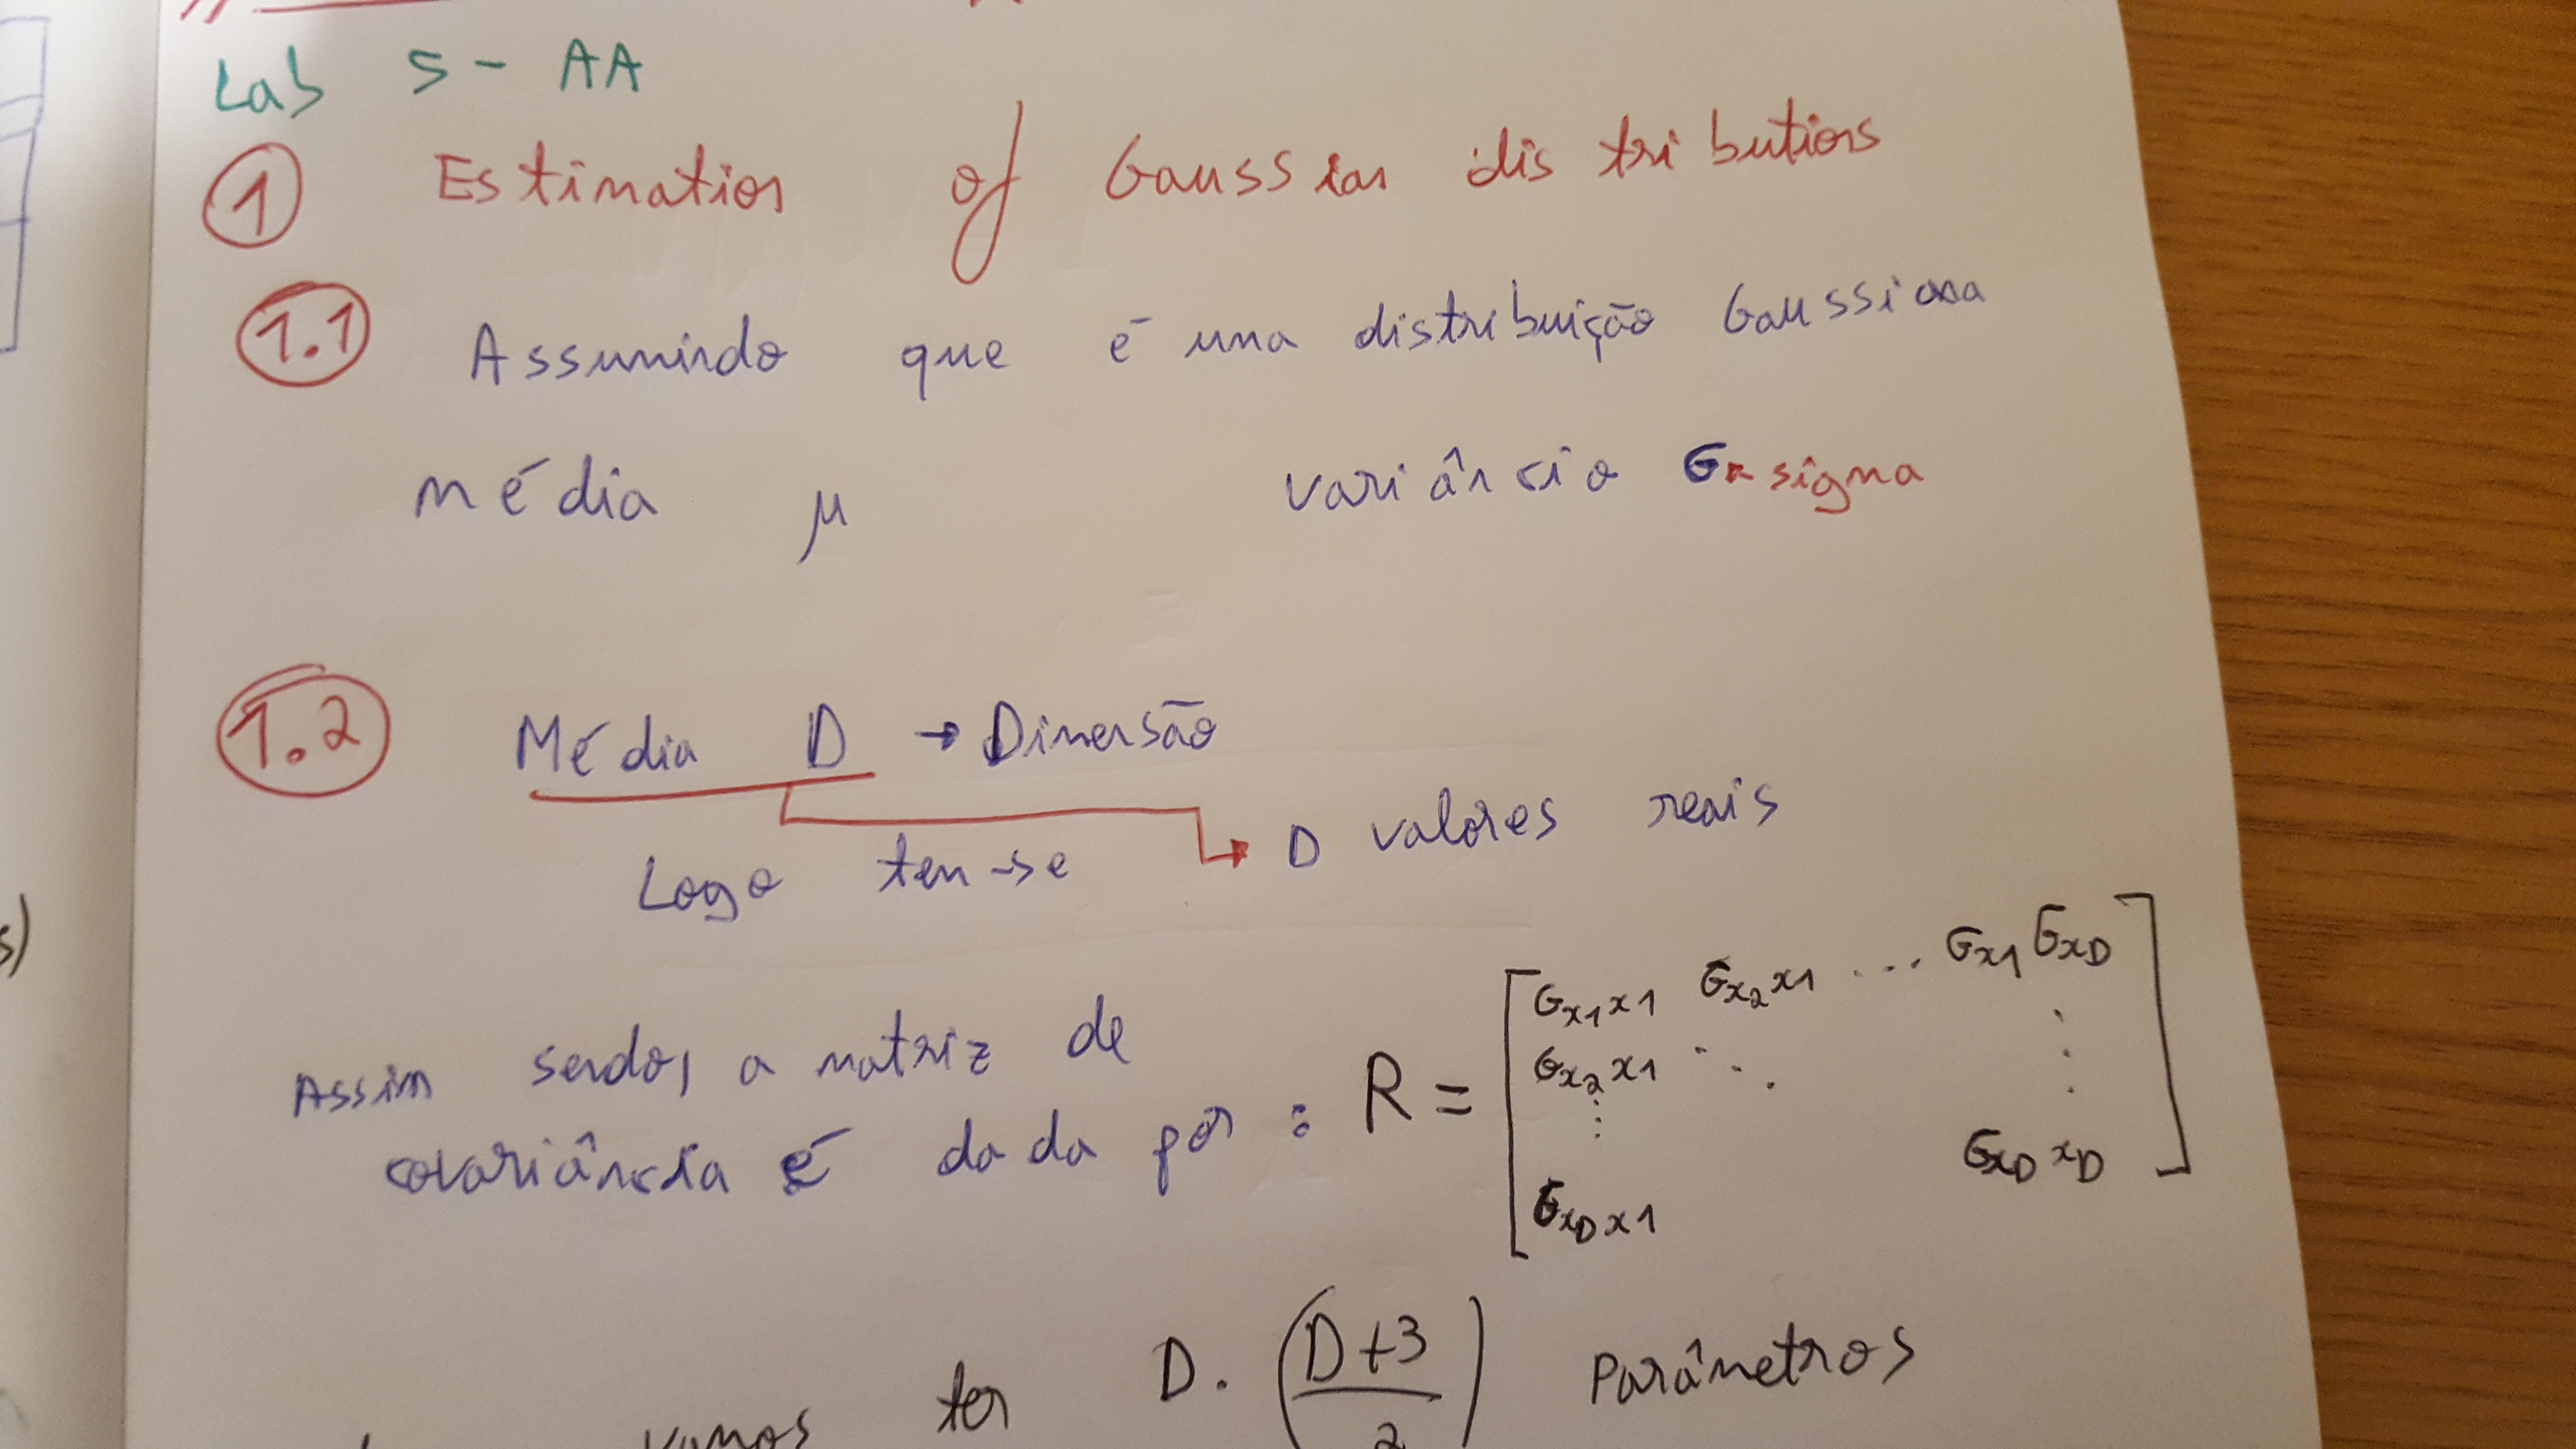 Lab 5 - AA
1 Estimation of Gaussian distributions
1.1 Assumindo que é uma distribuição Gaussiana
média μ variância σ ← sigma
1.2 Média D → Dimensão
Logo tem-se → D valores reais
Assim sendo, a matriz de
covariância é dada por : R =
[ σx1x1 σx2x1 ... σx1σxD
σx2x1 ⋱ ⋮
⋮
σxDx1 σxDxD ]
vamos ter D . ((D+3)/2) Parâmetros